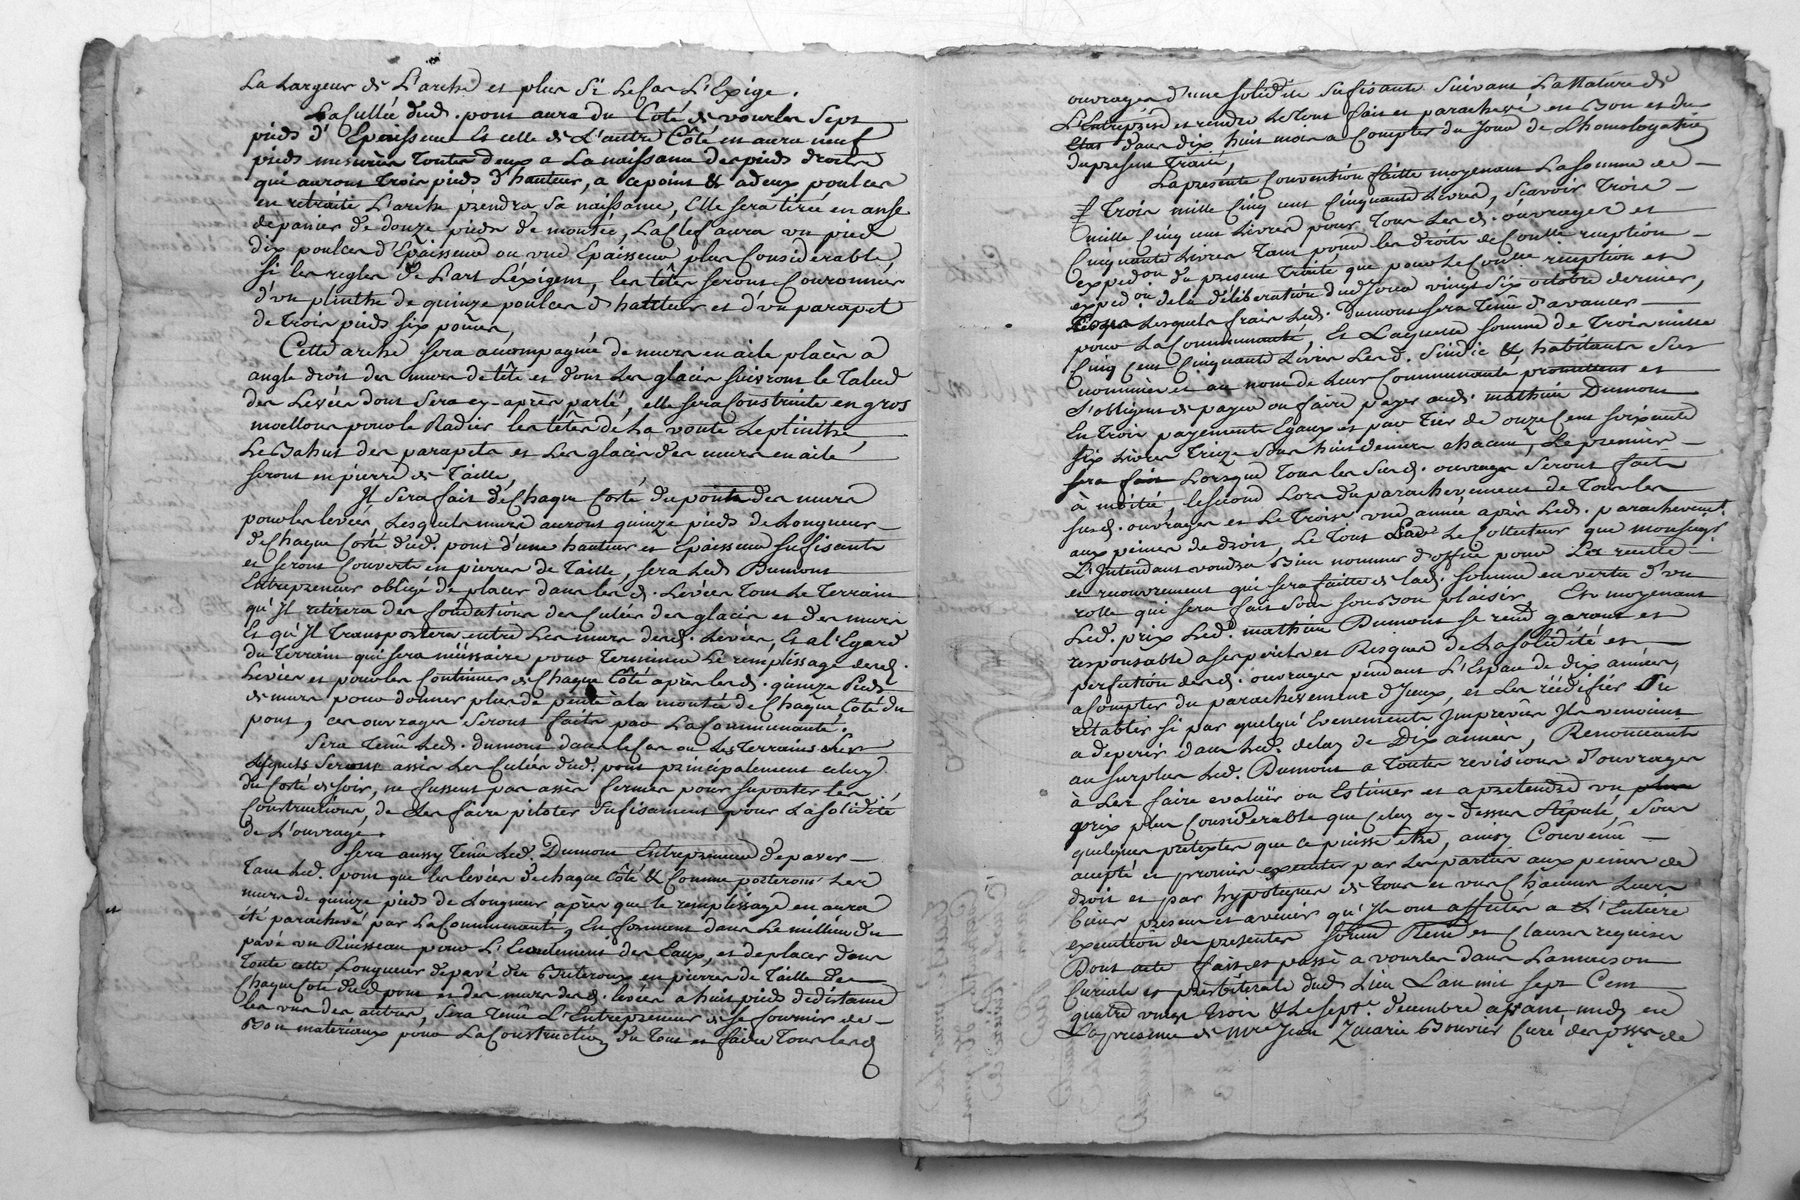 La Largeur de L'arche et plus Si Le Cas L'Exige.
La Cullée dud. pont aura du Coté de vourles Sept
pieds d'Epaisseur Et celle de L'autre Côté en aura neuf
pieds mesurés toutes deux a La naissance des pieds droits
qui auront trois pieds d'hauteur, a ce point & a deux poulces
en retraite L'arche prendra Sa naissance, Elle Sera tirée en anse
de panier de douze pieds de montée, La Clef aura un pied
dix poulces d'Epaisseur ou une Epaisseur plus Considerable,
Si les regles de L'art L'éxigent, les têtes Seront Couronnées
d'un plinthe de quinze poulces d'hauteur et d'un parapet
de trois pieds six poûces,
Cette arche Sera accompagnée de murs en aile placés a
angle droit des murs de tête et dont Les glacis Suivront le Talud
des Levées dont Sera cy-après parlé, elle Sera Construite en gros
moellons pour le Radier les têtes de La voute Le plinthe,
Le Bahut des parapets et Les glacis des murs en aile
Seront en pierre de Taille,
Il Sera fait de Chaque Costé du pont des murs
pour les levées, Lesquels murs auront quinze pieds de Longueur
de Chaque Costé dud. pont d'une hauteur et Epaisseur Sufisante
et Seront Couverts en pierres de Taille, Sera Led. Dumont
Entrepreneur obligé de placer dans les d. Levées Tout Le Terrain
qu'Il retirera des fondations des Culées des glacis et des murs
Et qu'Il Transportera entre Les murs desd. Levées, Et a L'Egard
du Terrain qui Sera nécessaire pour Terminer Le remplissage desd.
Levées et pour les Continuer de Chaque Côté après lesd. quinze Pieds
de murs pour donner plus de pente à la montée de Chaque Coté du
pont, ces ouvrages Seront faits par La Communauté.
Sera Tenû Led. dumont dans le Cas ou Les Terrains Sur
Lesquels Seront assis Les Culées dud. pont principalement celuy
du Costé de Soir, ne fussent pas assés fermes pour Suporter les
Constructions, de Les faire piloter Sufisament pour La Solidité
de L'ouvrage.
Sera aussy Tenû Led. Dumont Entrepreneur de paver
Tant Led. pont que les levées de chaque Côté & Comme porteront Les
murs de quinze pieds de Longueur après que le remplissage en aura
été parachevé par La Communauté, En formant dans Le millieu du
pavé un Ruisseau pour L'Ecoulement des Eaux, et de placer dans
Toute cette Longueur de pavé des Buteroux en pierres de Taille de
Chaque Coté dud pont et des murs desd. levées a huit pieds de distance
les uns des autres, Sera Tenû L'Entrepreneur de Se fournir de
Bon materiaux pour La Construction du Tout et faire Tous lesd
ouvrages d'une Solidité Sufisante Suivant La Nature de
L'Entreprise et rendre Le Tout fait et parachevé en Bon et du
Etat dans dix huit mois a Compter du Jour de L'homologation
du present Traité,
La présente Convention faitte moyenant La Somme de
Trois mille Cinq cent Cinquante Livres, Scavoir Trois
mille Cinq cent Livres pour Tous Les d. ouvrages et
Cinquante Livres Tant pour les droits de Conlle reception
Expedon du present Traité que pour le Conlle réception et
expedon de la déliberation du Jour vingt Six octobre dernier,
Lesquels frais Led. Dumont Sera Tenû d'avancer
pour La Communauté, Et Laquelle Somme de Trois mille
Cinq Cent Cinquante Livres Lesd. Sindic & habitants Sus
nommés et au nom de Leur Communauté promettent et
S'obligent de payer ou faire payer aud. mathieu Dumont
En Trois payements Egaux et par Tier de onze Cent Soixante
Six Livres Treize Sous huit deniers chacun, Le premier
Sera fait Lorsque Tous les Susd. ouvrages Seront faits
à moitié, le Second Lors du parachevement de Tous les
Susd. ouvrages et Le Troise une année après Led. parachevement
aux peines de droit, Le Tout Par Le Collecteur que monseigr
L'Intendant voudra Bien nommer d'office pour La recette
et recouvrement qui Sera faitte de Lad. Somme en vertu d'un
rolle qui Sera fait Sous Son Bon plaisir, Et moyenant
Led. prix Led. mathieu Dumont Se rend garant et
responsable a Ses perils et Risques de La Solidité et
perfection desd. ouvrages pendant L'Espace de dix années
a Compter du parachevement d'Iceux, et Les réédifier Ou
rétablir Si par quelqu'Evenements Imprévûs Ils venoient
a deperir dans Led. delay de Dix années, Renonceant
au Surplus Led. Dumont a Toutes revisions d'ouvrages
à Les faire evalüer ou Estimer et a pretendre un
prix plus Considerable que Celuy cy-dessus Stipulé, Sous
quelques pretextes que ce puisse être, ainsy Convenû
accepté et promis executer par Les parties aux peines de
droit et par hypoteques de Tous et uns Chacuns Leurs
Biens presens et avenir qu'Ils ont affectés a L'Entiere
execution des presentes Soumis Renon et Clauses requises
Dont acte fait et passé a vourles dans La maison
Curiale et presbiterale dud. Lieu L'an mil Sept Cent
quatre vingt trois & Le Sept. decembre avant midy en
La presence de Mre Jean Zacarie Bouvier Curé des posses de